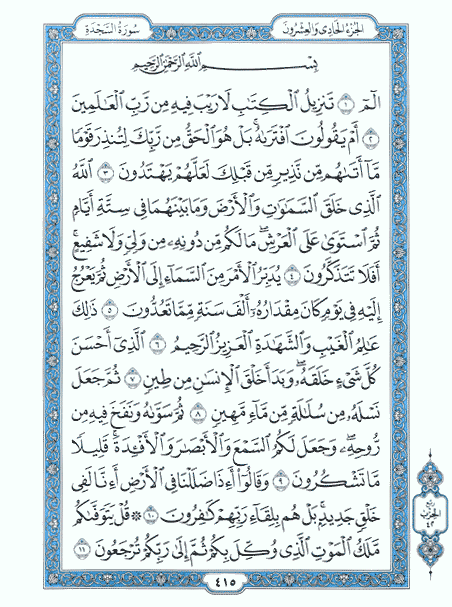 الجزء الحادي والعشرون
سورة السجدة
بِسْمِ ٱللَّهِ ٱلرَّحْمَٰنِ ٱلرَّحِيمِ
الٓمٓ ١ تَنزِيلُ ٱلْكِتَٰبِ لَا رَيْبَ فِيهِ مِن رَّبِّ ٱلْعَٰلَمِينَ
٢ أَمْ يَقُولُونَ ٱفْتَرَىٰهُ ۚ بَلْ هُوَ ٱلْحَقُّ مِن رَّبِّكَ لِتُنذِرَ قَوْمًا
مَّآ أَتَىٰهُم مِّن نَّذِيرٍ مِّن قَبْلِكَ لَعَلَّهُمْ يَهْتَدُونَ ٣ ٱللَّهُ
ٱلَّذِى خَلَقَ ٱلسَّمَٰوَٰتِ وَٱلْأَرْضَ وَمَا بَيْنَهُمَا فِى سِتَّةِ أَيَّامٍ
ثُمَّ ٱسْتَوَىٰ عَلَى ٱلْعَرْشِ ۖ مَا لَكُم مِّن دُونِهِۦ مِن وَلِىٍّ وَلَا شَفِيعٍ ۚ
أَفَلَا تَتَذَكَّرُونَ ٤ يُدَبِّرُ ٱلْأَمْرَ مِنَ ٱلسَّمَآءِ إِلَى ٱلْأَرْضِ ثُمَّ يَعْرُجُ
إِلَيْهِ فِى يَوْمٍ كَانَ مِقْدَارُهُۥٓ أَلْفَ سَنَةٍ مِّمَّا تَعُدُّونَ ٥ ذَٰلِكَ
عَٰلِمُ ٱلْغَيْبِ وَٱلشَّهَٰدَةِ ٱلْعَزِيزُ ٱلرَّحِيمُ ٦ ٱلَّذِىٓ أَحْسَنَ
كُلَّ شَىْءٍ خَلَقَهُۥ ۖ وَبَدَأَ خَلْقَ ٱلْإِنسَٰنِ مِن طِينٍ ٧ ثُمَّ جَعَلَ
نَسْلَهُۥ مِن سُلَٰلَةٍ مِّن مَّآءٍ مَّهِينٍ ٨ ثُمَّ سَوَّىٰهُ وَنَفَخَ فِيهِ مِن
رُّوحِهِۦ ۖ وَجَعَلَ لَكُمُ ٱلسَّمْعَ وَٱلْأَبْصَٰرَ وَٱلْأَفْـِٔدَةَ ۚ قَلِيلًا
مَّا تَشْكُرُونَ ٩ وَقَالُوٓا۟ أَءِذَا ضَلَلْنَا فِى ٱلْأَرْضِ أَءِنَّا لَفِى
خَلْقٍ جَدِيدٍۭ ۚ بَلْ هُم بِلِقَآءِ رَبِّهِمْ كَٰفِرُونَ ١٠ ۞ قُلْ يَتَوَفَّىٰكُم
مَّلَكُ ٱلْمَوْتِ ٱلَّذِى وُكِّلَ بِكُمْ ثُمَّ إِلَىٰ رَبِّكُمْ تُرْجَعُونَ ١١
الحزب
٤٢
٤١٥